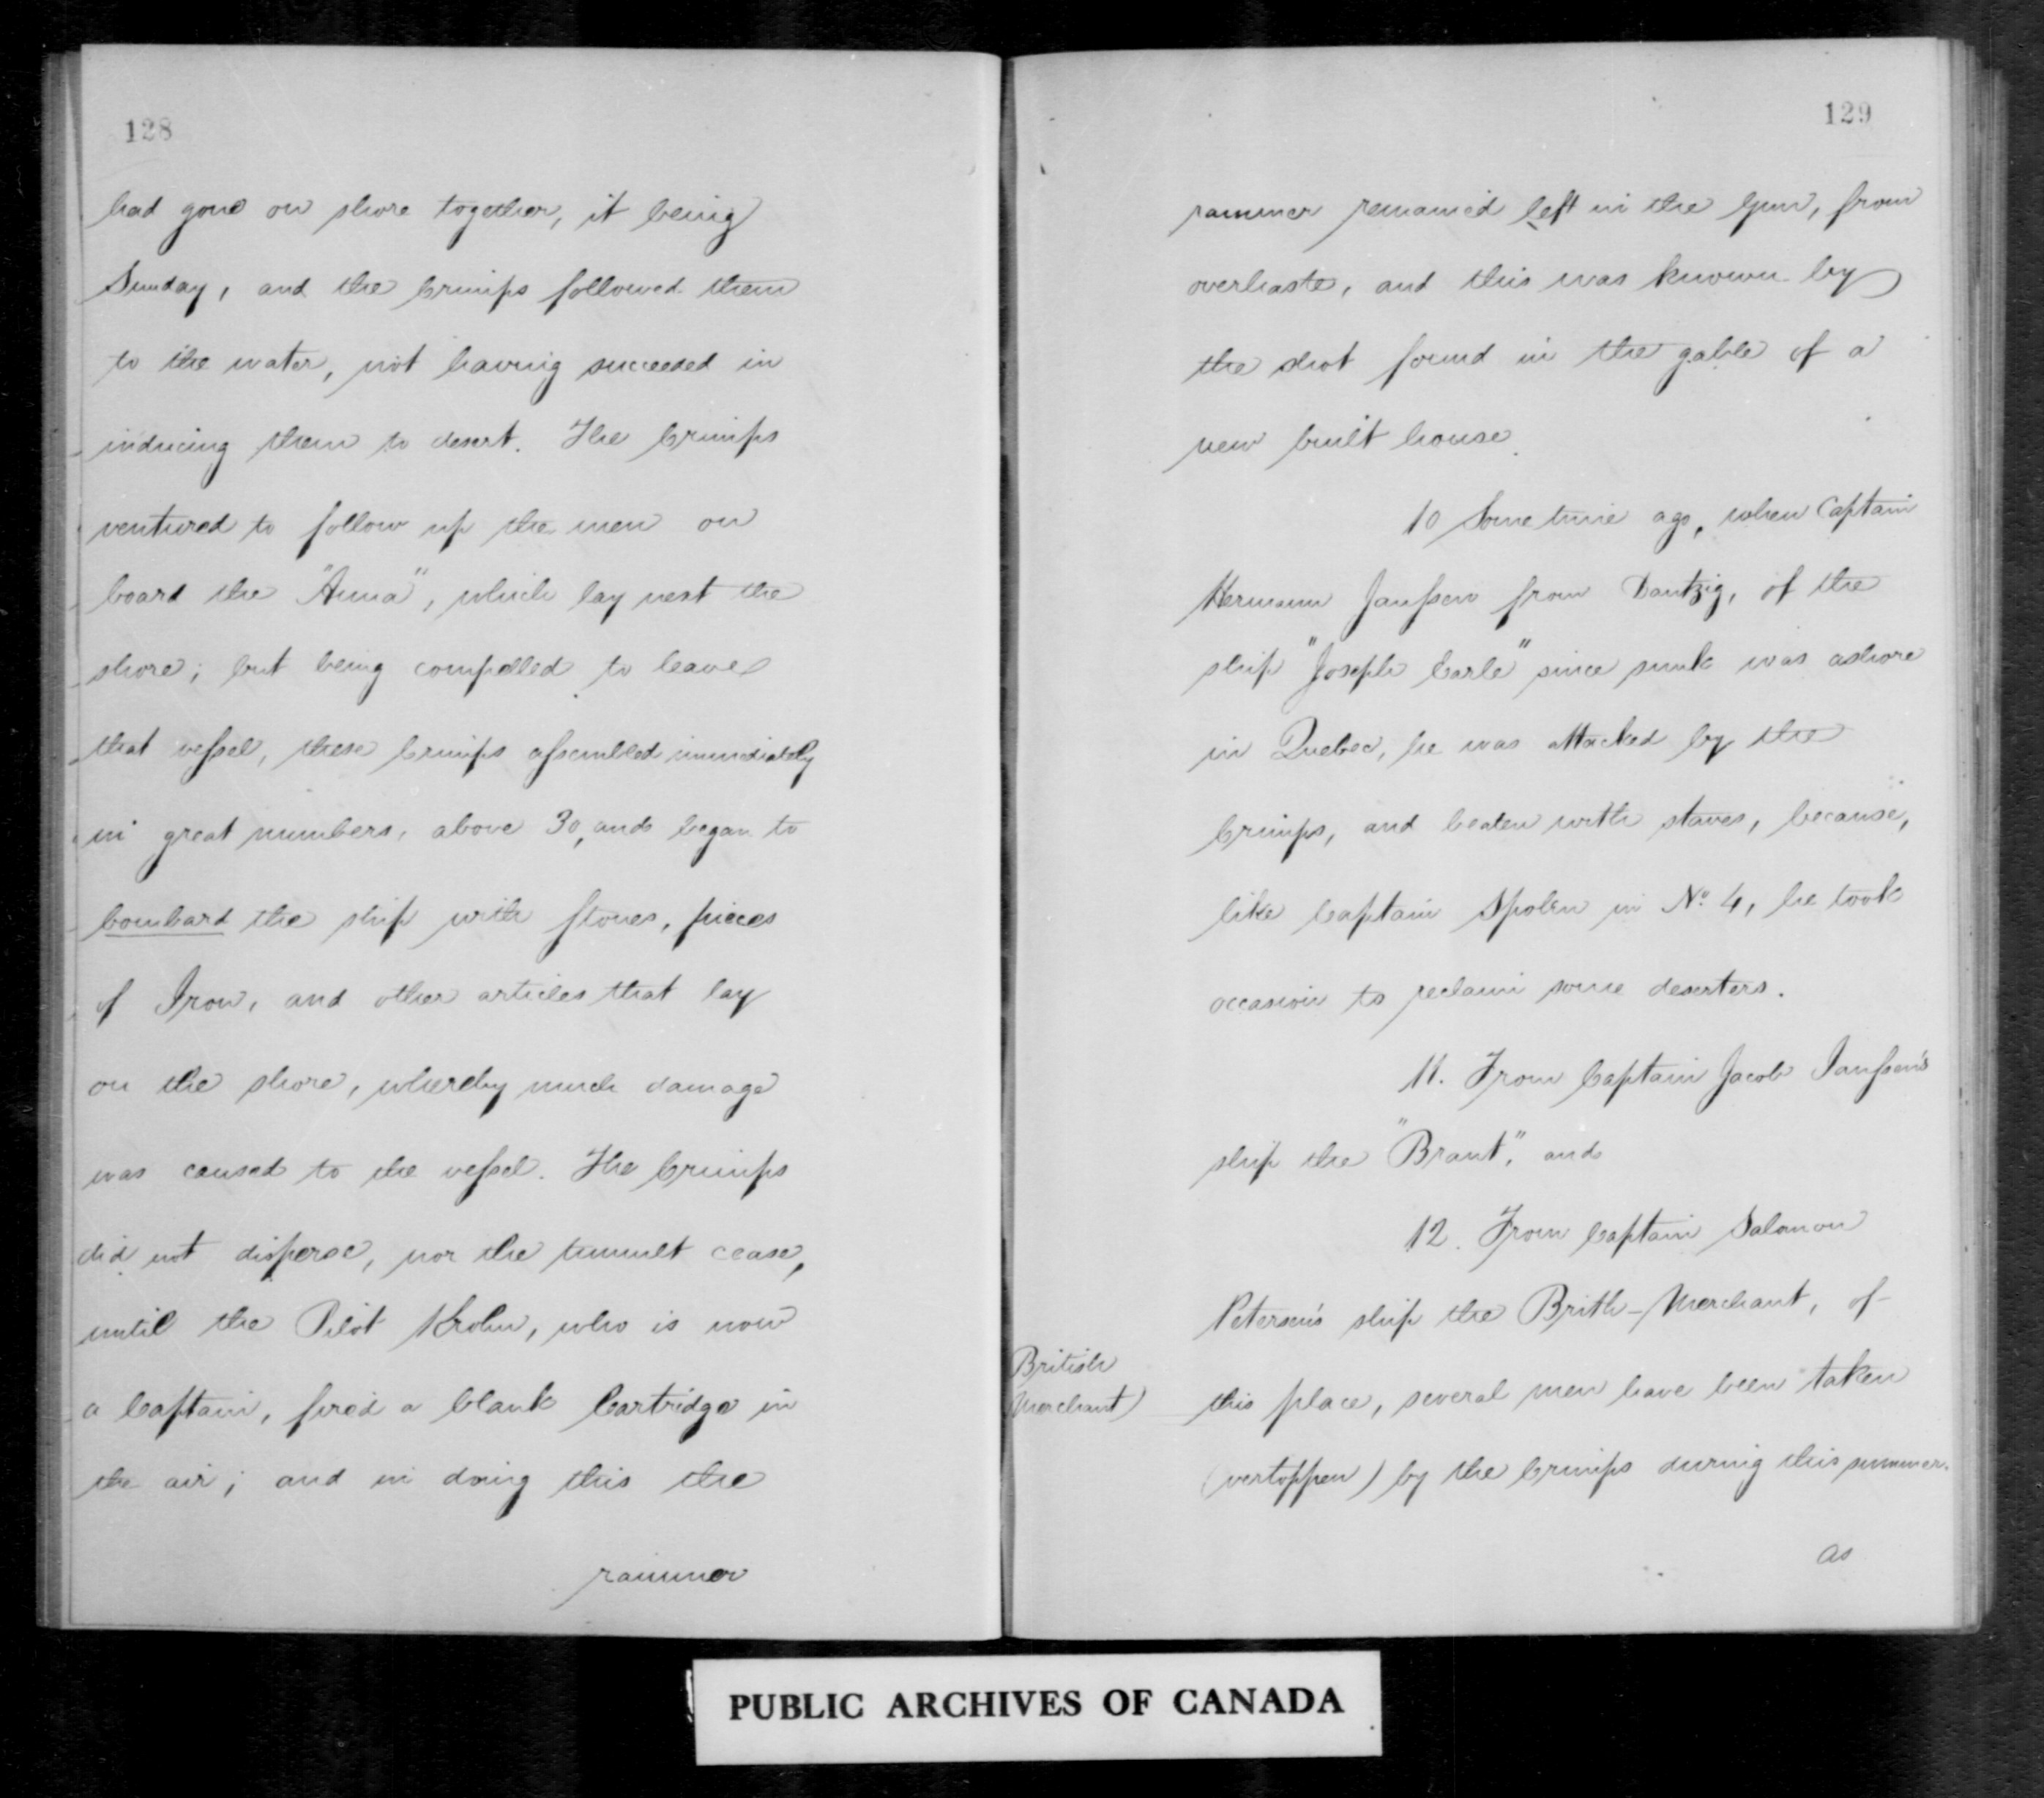 128
had gone on shore together, it being
Sunday, and the Crimps followed them
to the water, not having succeeded in
inducing them to desert. The Crimps
ventured to follow up the men on
board the "Anna", which lay next the
shore; but being compelled to leave
that vessel, these Crimps assembled immediately
in great numbers, above 30, and began to
bombard the ship with stones, pieces
of Iron, and other articles that lay
on the shore, whereby much damage
was caused to the vessel. The Crimps
did not disperse, nor the tumult cease,
until the Pilot Krohn, who is now
a Captain, fired a blank Cartridge in
the air; and in doing this the
rammer
129
rammer remained left in the Gun, from
overhaste, and this was known by
the shot found in the gable of a
new built house.
10 Some time ago, when Captain
Hermann Janssen from Dantzig, of the
ship "Joseph Carle" since sunk was ashore
in Quebec, he was attacked by the
Crimps, and beaten with staves, because,
like Captain Spolen in No. 4, he took
occasion to reclaim some deserters.
11. From Captain Jacob Janssen's
ship the "Brant", and
12. From Captain Salomon
Petersen's ship the Brith-Merchant, of
British
Merchant)
this place, several men have been taken
(vertoppen) by the Crimps during this summer.
as
PUBLIC ARCHIVES OF CANADA